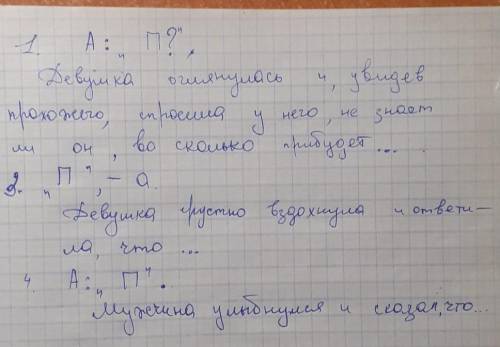 1. А: „ П?",
Девушка оглянулась и, увидев
прохожего, спросила у него, не знает
ли он, во сколько прибудет... .
3. „П", – а.
Девушка грустно вздохнула и ответи-
ла, что ...
4. А: „ П".
Мужчина улыбнулся и сказал, что...